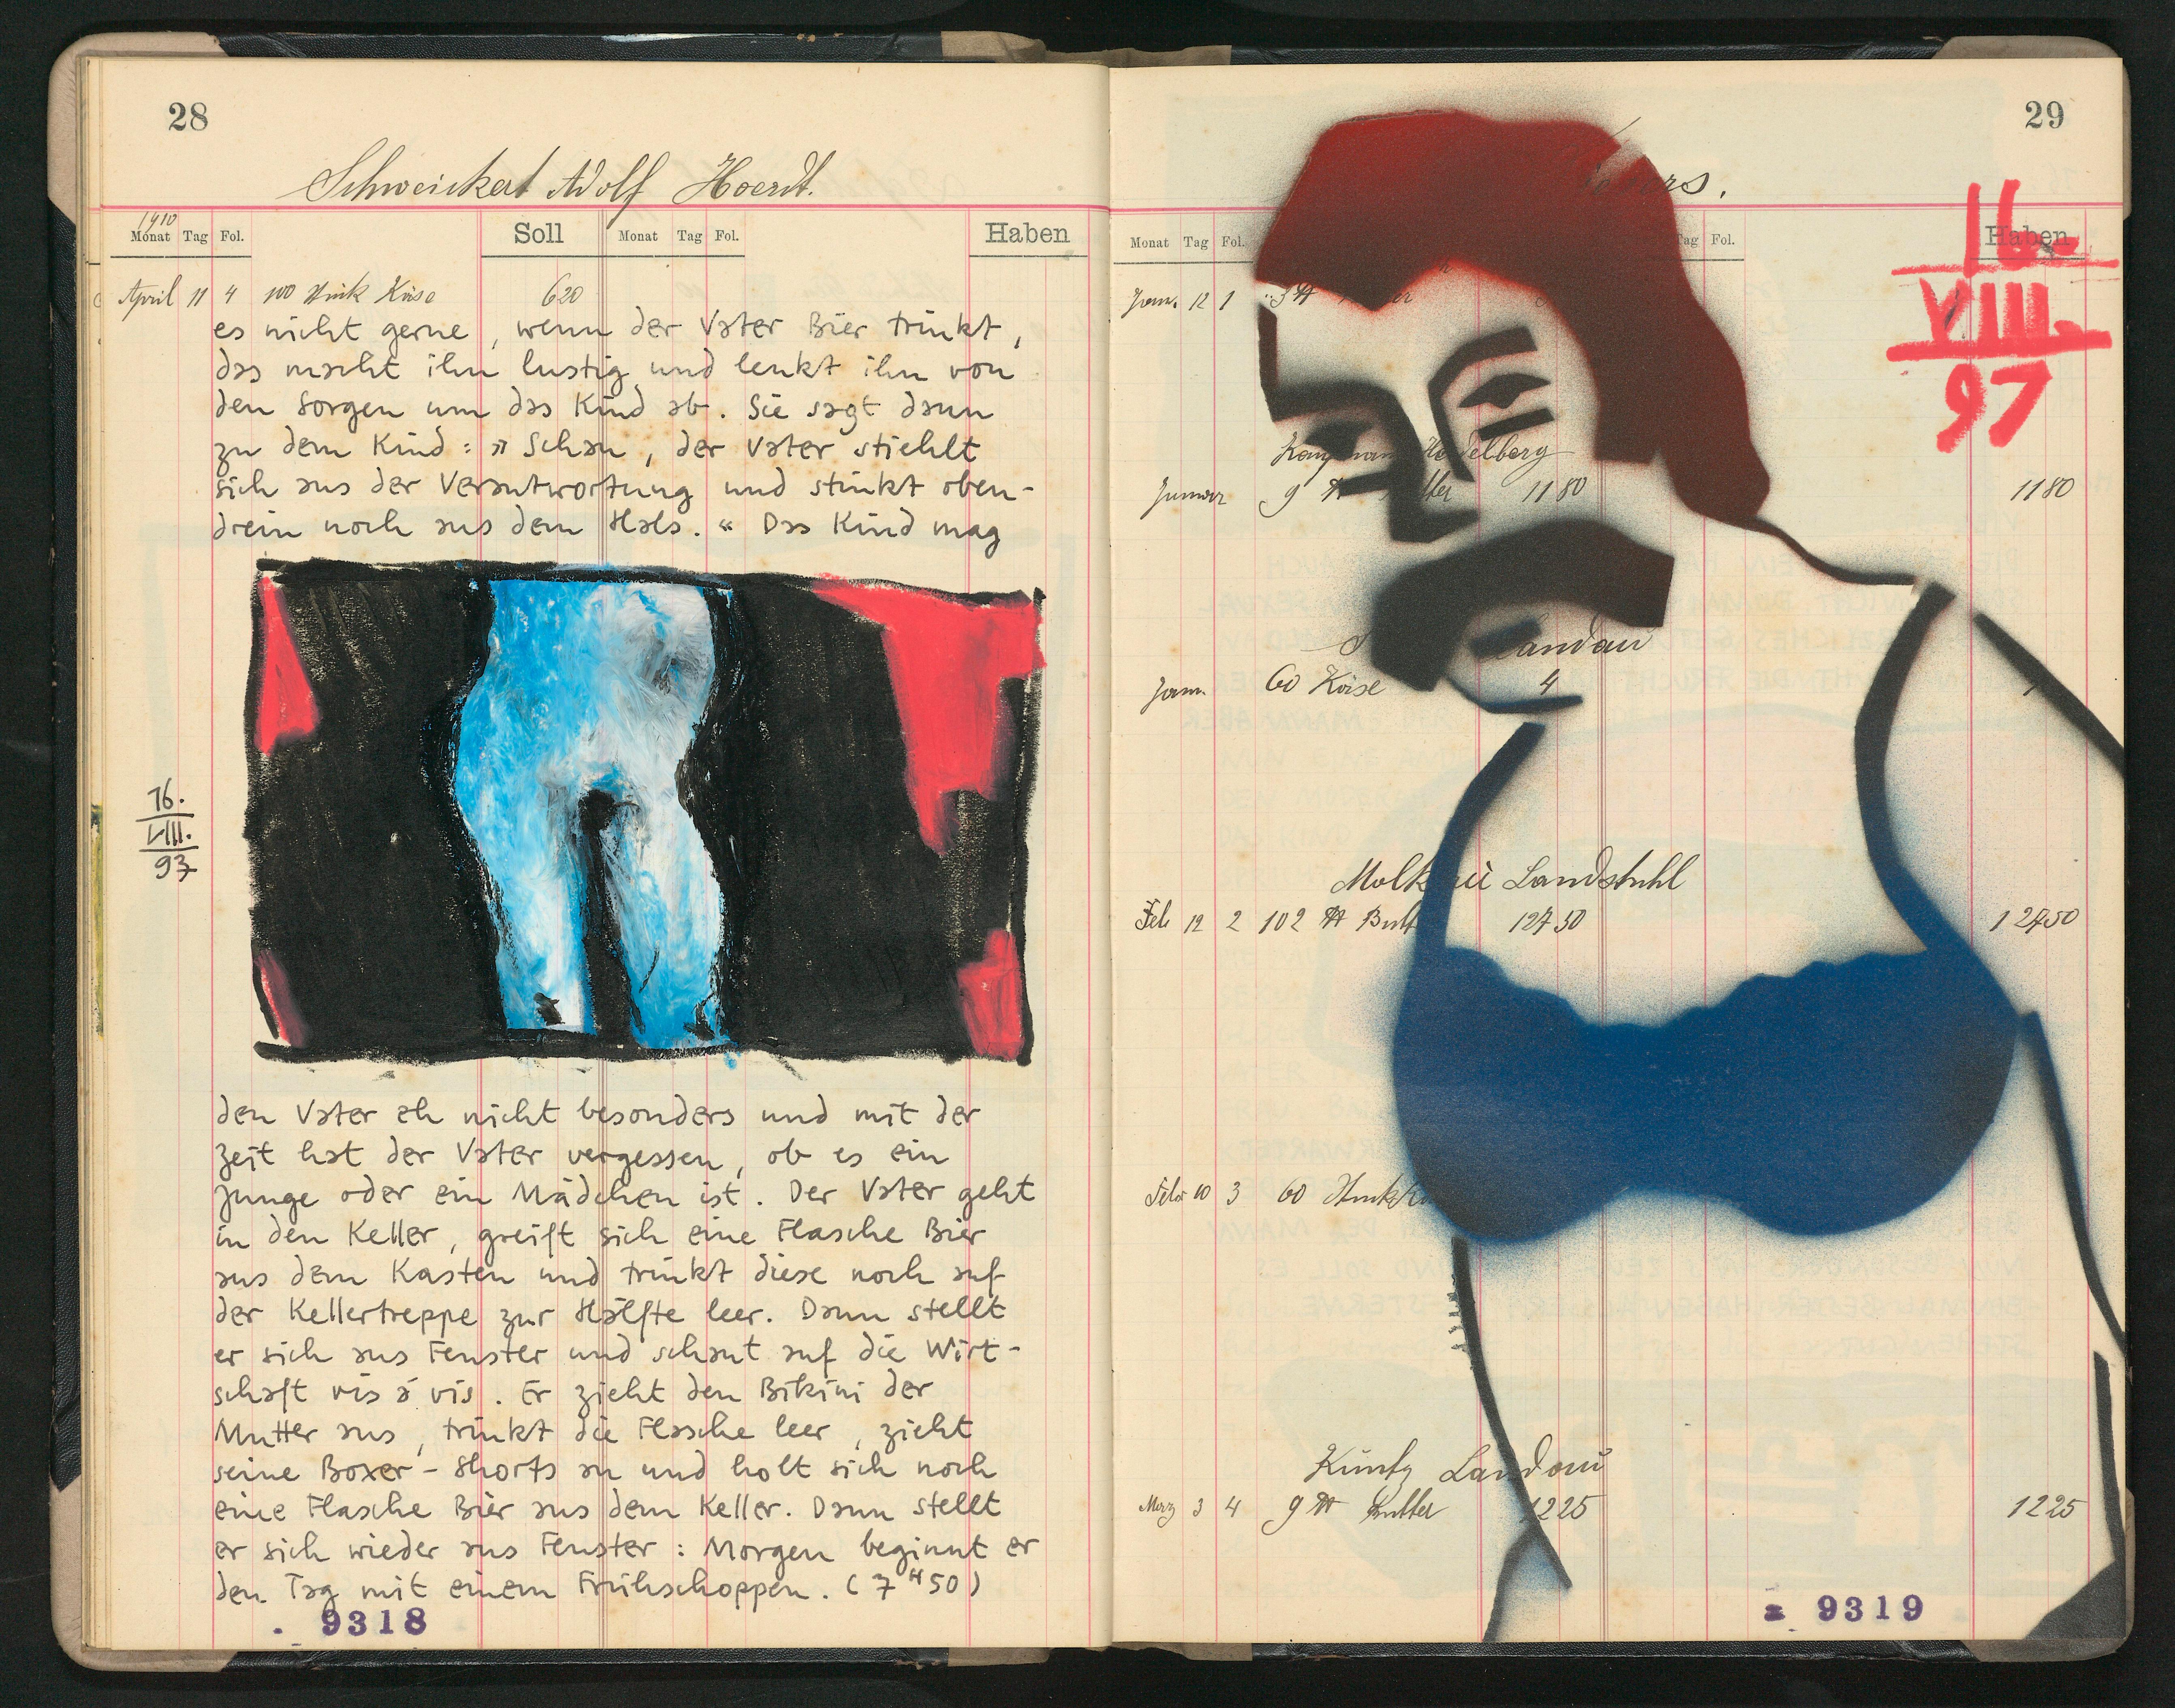 28
Schweickert Adolf Hoerdt.
1910
Monat Tag Fol. Soll Monat Tag Fol. Haben
April 11 4 100 Stück Käse 620
es nicht gerne, wenn der Vater Bier trinkt,
das macht ihn lustig und lenkt ihn von
den Sorgen um das Kind ab. Sie sagt dann
zu dem Kind: » Schau, der Vater stiehlt
sich aus der Verantwortung und stinkt oben-
drein noch aus dem Hals. « Das Kind mag
16.
VIII.
97
den Vater eh nicht besonders und mit der
Zeit hat der Vater vergessen, ob es ein
Junge oder ein Mädchen ist. Der Vater geht
in den Keller, greift sich eine Flasche Bier
aus dem Kasten und trinkt diese noch auf
der Kellertreppe zur Hälfte leer. Dann stellt
er sich ans Fenster und schaut auf die Wirt-
schaft vis á vis. Er zieht den Bikini der
Mutter aus, trinkt die Flasche leer, zieht
seine Boxer-Shorts an und holt sich noch
eine Flasche Bier aus dem Keller. Dann stellt
er sich wieder ans Fenster: Morgen beginnt er
den Tag mit einem Frühschoppen. (7 H 50)
9318
29
Monat Tag Fol. Tag Fol. Haben
16.
VIII.
97
Jan. 12 1
Heidelberg
Januar 9 1180 1180
Landau
Jan. 60 Käse 4
Molkerei Landstuhl
Feb 12 2 102 ℔ Butt 12750 12750
Febr 10 3 60
Küntz Landau
März 3 4 9 ℔ Butter 1225 1225
9319